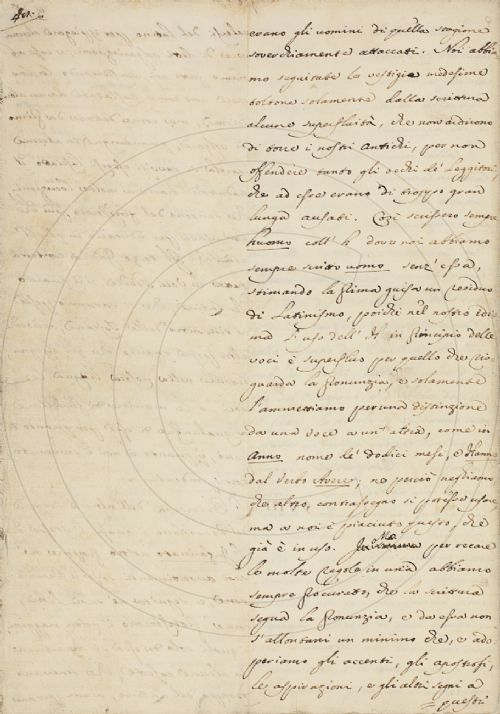 erano gli uomini di quella stagione
soverchiamente attaccati. Noi abbia-
mo seguitate le vestigie medesime
toltone solamente dalla scrittura
alcune superfluità, che non ardirono
di torre i nostri Antichi, per non
offendere tanto gli occhi de' Leggitori
che ad esse erano di troppo gran
lunga ausati. Così scrissero sempre
huomo coll' h dove noi abbiamo
sempre scritto uomo senz' essa,
stimando la prima guisa un residuo
di Latinismo, poichè nel nostro idio
ma l' uso dell' H in principio delle
voci è superfluo per quello che ri
guarda la pronunzia, e solamente
l'ammettiamo per una distinzione
da una voce a un' altra, come in
Anno nome de' dodici mesi, e Hanno
dal Verbo Avere; nè perciò neghiamo
che altro contrassegno si potesse usare
ma a noi è piaciuto questo, che
già è in uso. Ma per recare
le molte regole in una abbiamo
sempre procurato, che la scrittura
segua la pronunzia, e da essa non
s'allontani un minimo che, e ado
periamo gli accenti, gli apostrofi,
le aspirazioni, e gli altri segni a
questi